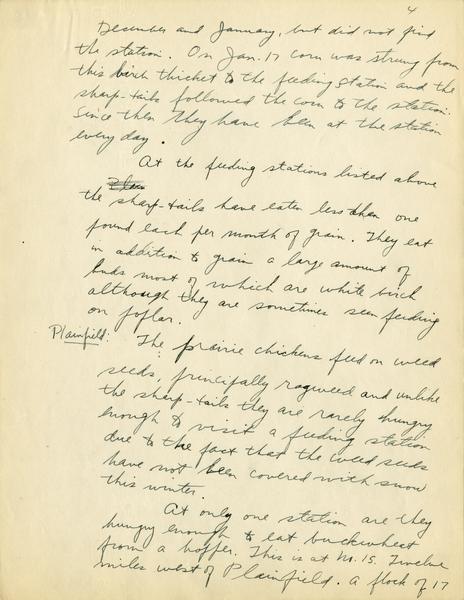 4
December and January, but did not find
the station. On Jan. 17 corn was strung from
this birch thicket to the feeding station and the
sharp-tails followed the corn to the station.
Since then they have been at the station
every day.
At the feeding stations listed above
the sharp-tails have eaten less than one
pound each per month of grain. They eat
in addition to grain a large amount of
buds most of which are white birch
although they are sometimes seen feeding
on poplar.
Plainfield: The prairie chickens feed on weed
seeds, principally ragweed and unlike
the sharp-tails they are rarely hungry
enough to visit a feeding station
due to the fact that the weed seeds
have not been covered with snow
this winter.
At only one station are they
hungry enough to eat buckwheat
from a hopper. This is at No. 15. Twelve
miles west of Plainfield. A flock of 17